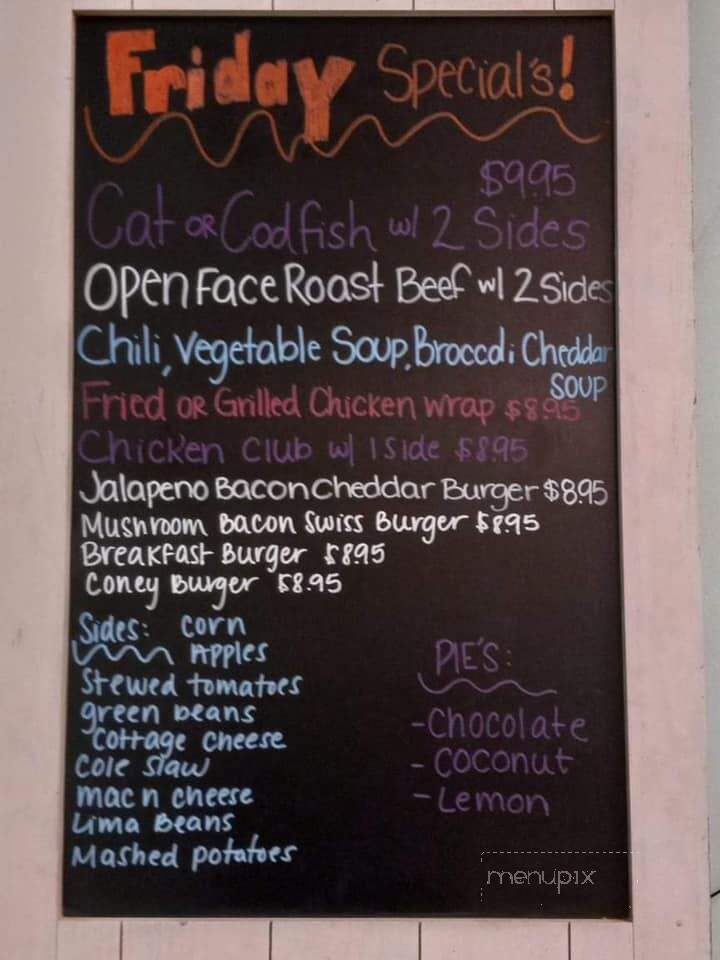 Friday Special's!
$9.95
Cat or Codfish w/ 2 Sides
Open Face Roast Beef w/ 2 Sides
Chili, Vegetable Soup, Broccoli Cheddar
Soup
Fried or Grilled Chicken wrap $8.95
Chicken Club w/ 1 Side $8.95
Jalapeno Bacon Cheddar Burger $8.95
Mushroom Bacon Swiss Burger $8.95
Breakfast Burger $8.95
Coney Burger $8.95
Sides: corn
Apples
Stewed tomatoes
green beans
Cottage cheese
Cole Slaw
mac n cheese
Lima Beans
Mashed potatoes
PIE'S:
- Chocolate
- Coconut
- Lemon
menupix